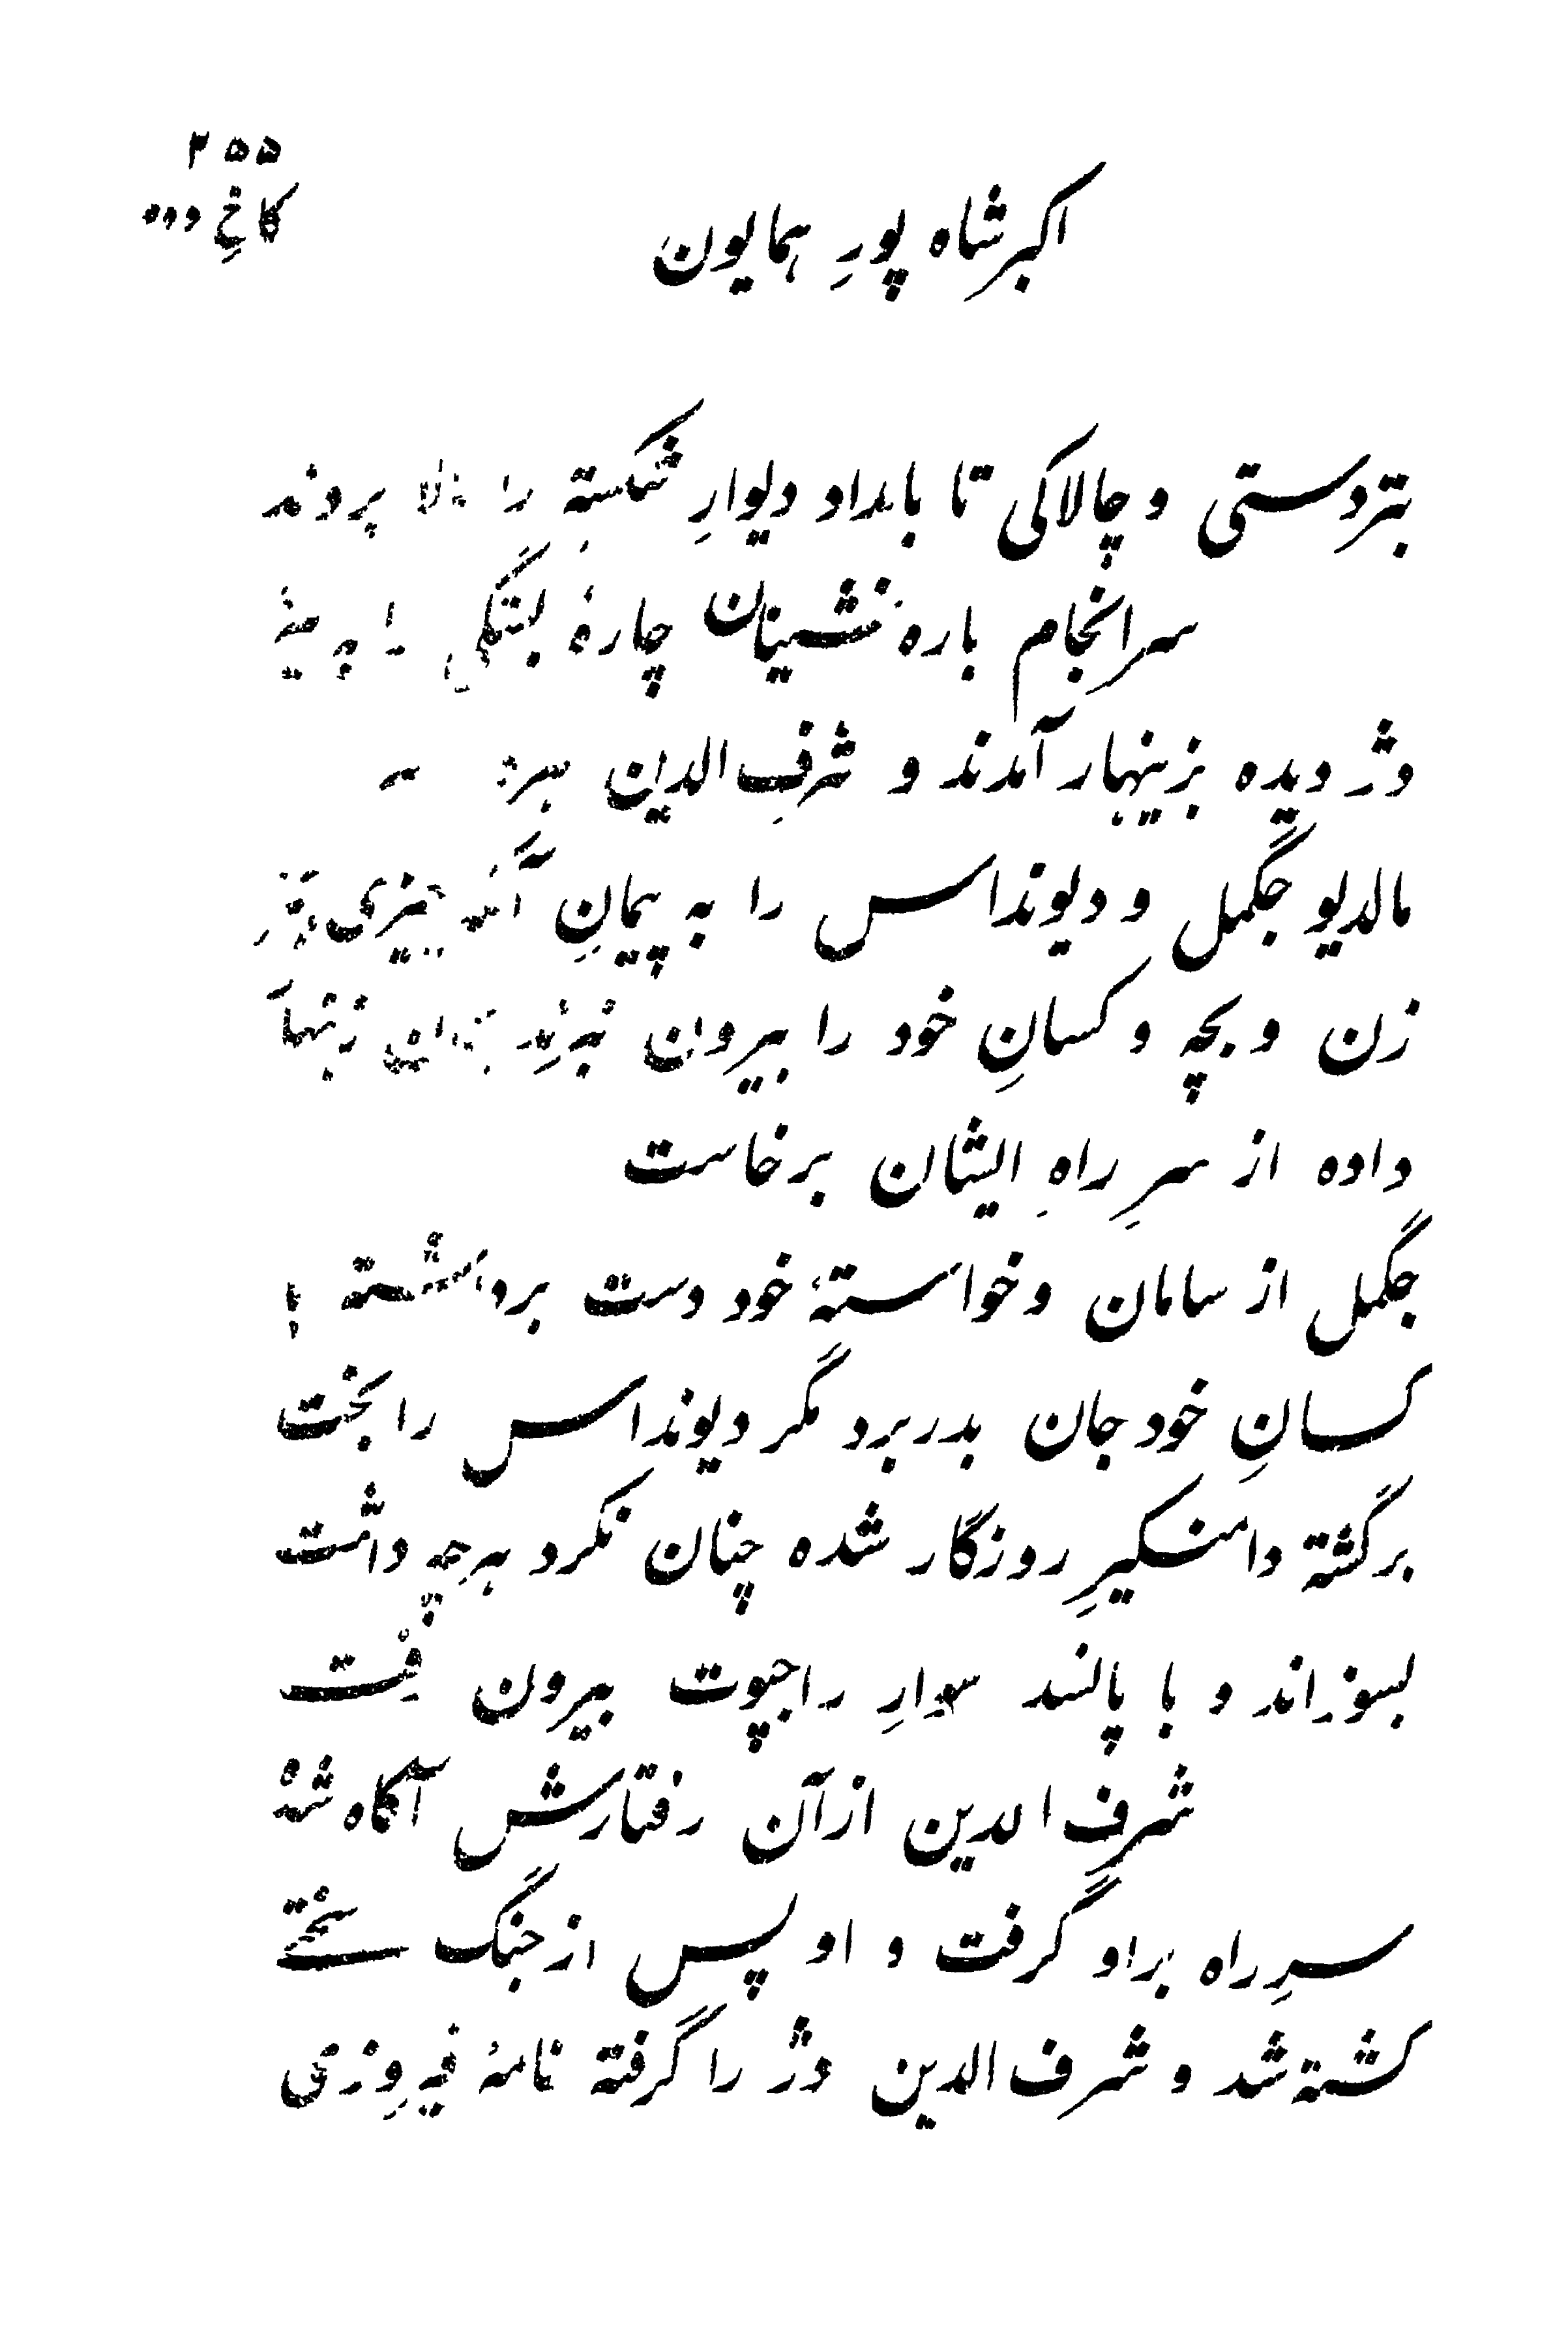 ۲۵۵
کاخِ دوم
اکبر شاه پورِ همایون
بتردستی و چالاکی تا بامداد دیوارِ شکسته را بالا بردند
سرانجام باره نشینان چارهٔ بستگی را در
دژ دیده بزینهار آمدند و شرف‌الدین
مالدیو جگمل و دیونداس را به پیمانِ آنکه چیزی جز
زن و بچه و کسانِ خود را بیرون نبرند زینهار
داده از سرِ راهِ ایشان برخاست
جگمل از سامان و خواستهٔ خود دست برداشته با
کسانِ خود جان بدر برد مگر دیونداس را بخت
برگشته دامنگیرِ روزگار شده چنان نکرد هرچه داشت
بسوزاند و با پانسد سوارِ راجپوت بیرون رفت
شرف الدین از آن رفتارش آگاه شده
سرِ راه بر او گرفت و او پس از جنگ سختے
کشته شد و شرف الدین دژ را گرفته نامهٔ فیروزی